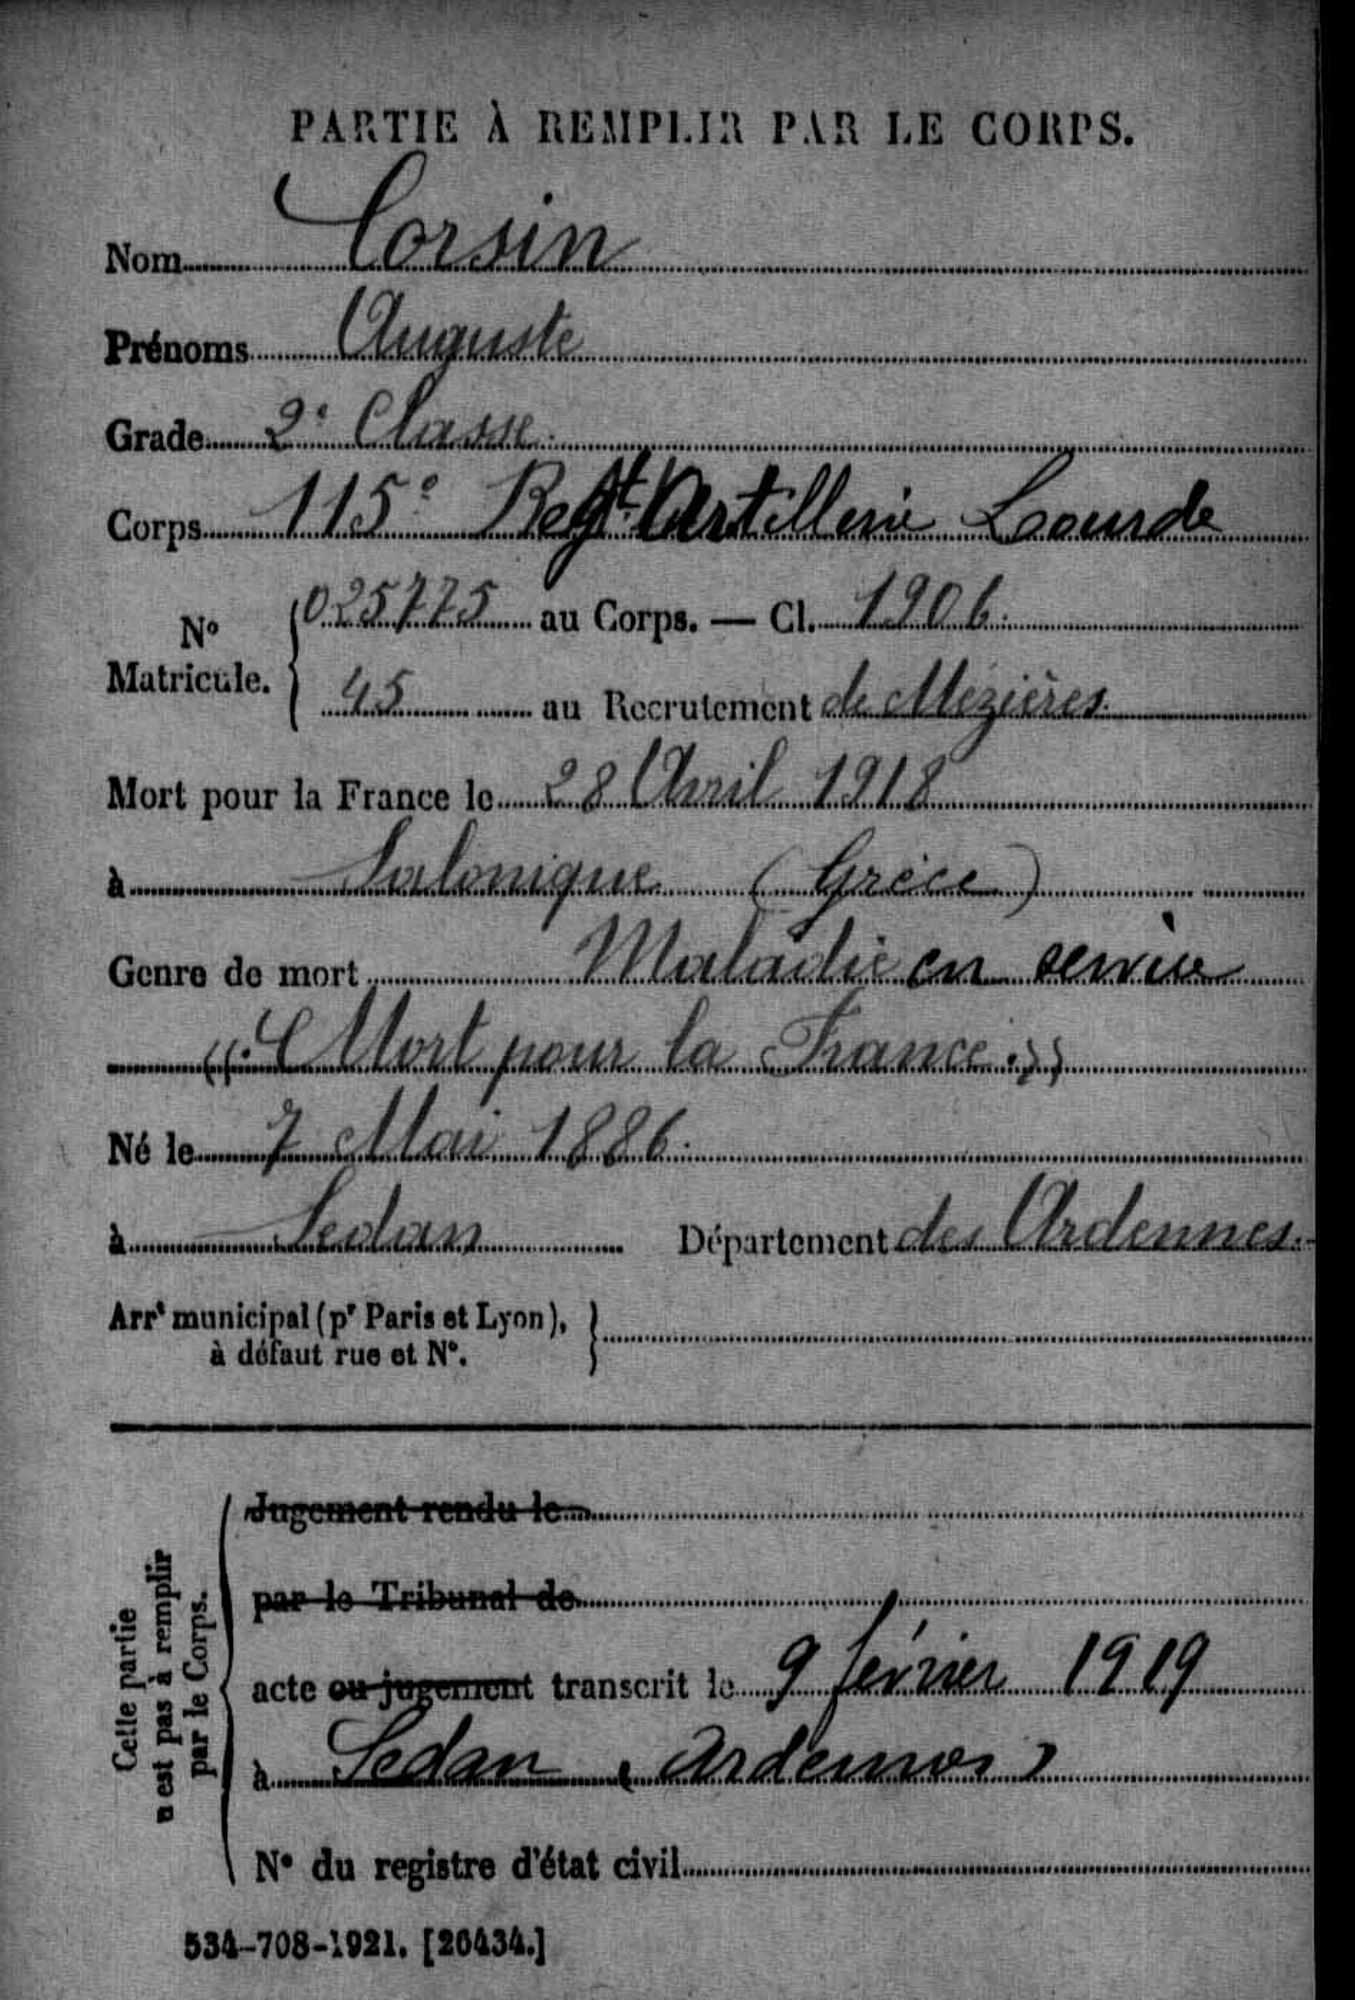 PARTIE À REMPLIR PAR LE CORPS.
Nom Corsin
Prénoms Auguste
Grade 2e Classe.
Corps 115e Regt. Artillerie Lourde
No Matricule. { 025775 au Corps. — Cl. 1906.
45 au Recrutement de Mézières.
Mort pour la France le 28 Avril 1918
à Salonique (Grèce)
Genre de mort Maladie en service
«Mort pour la France.»
Né le 7 Mai 1886.
à Sedan Département des Ardennes.
Arrt municipal (pr Paris et Lyon),
à défaut rue et No.
Cette partie
n'est pas à remplir
par le Corps.
Jugement rendu le
par le Tribunal de
acte ou jugement transcrit le 9 février 1919
à Sedan (Ardennes)
No du registre d'état civil
534-708-1921. [26434.]